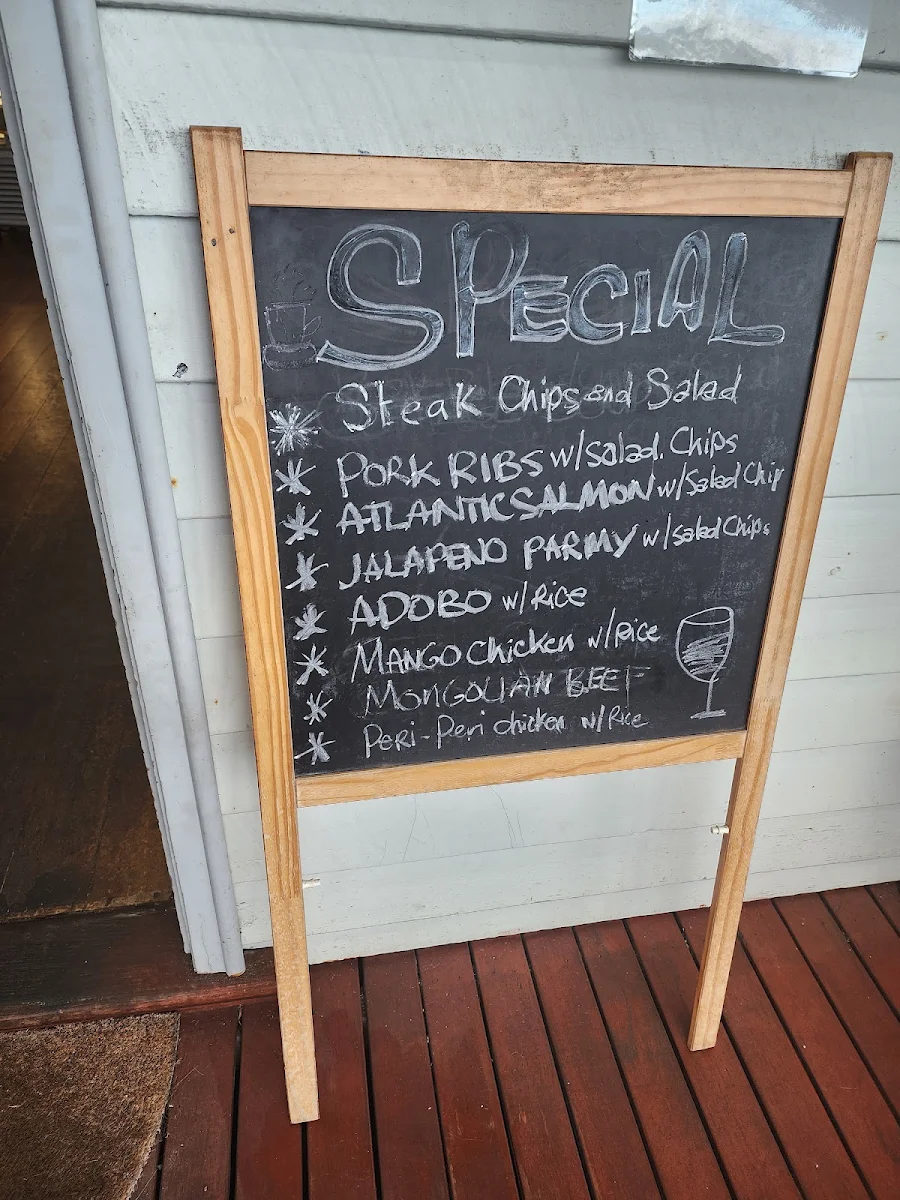 SPECIAL
Steak Chips and Salad
PORK RIBS w/salad. Chips
ATLANTIC SALMON w/Salad Chip
JALAPENO PARMY w/salad Chips
ADOBO w/Rice
MANGO chicken w/Rice
MONGOLIAN BEEF
Peri-Peri chicken w/Rice